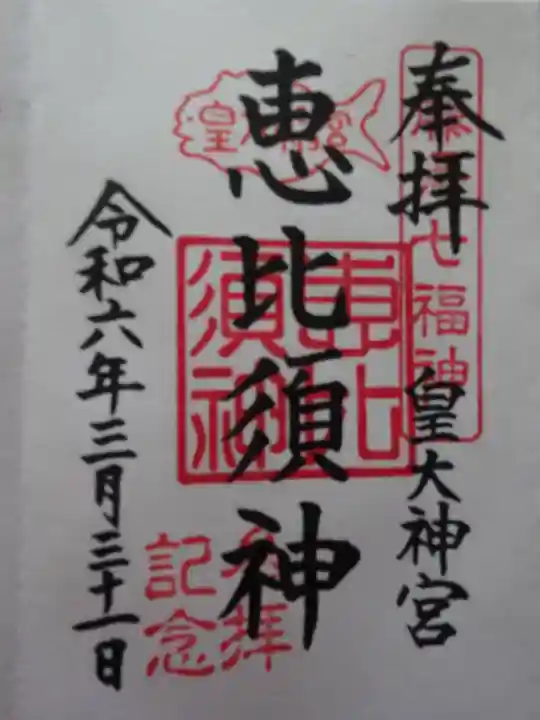 奉拝
皇大神宮
七福神
恵比須神
皇大神宮
恵比須神
参拝
記念
令和六年三月三十一日